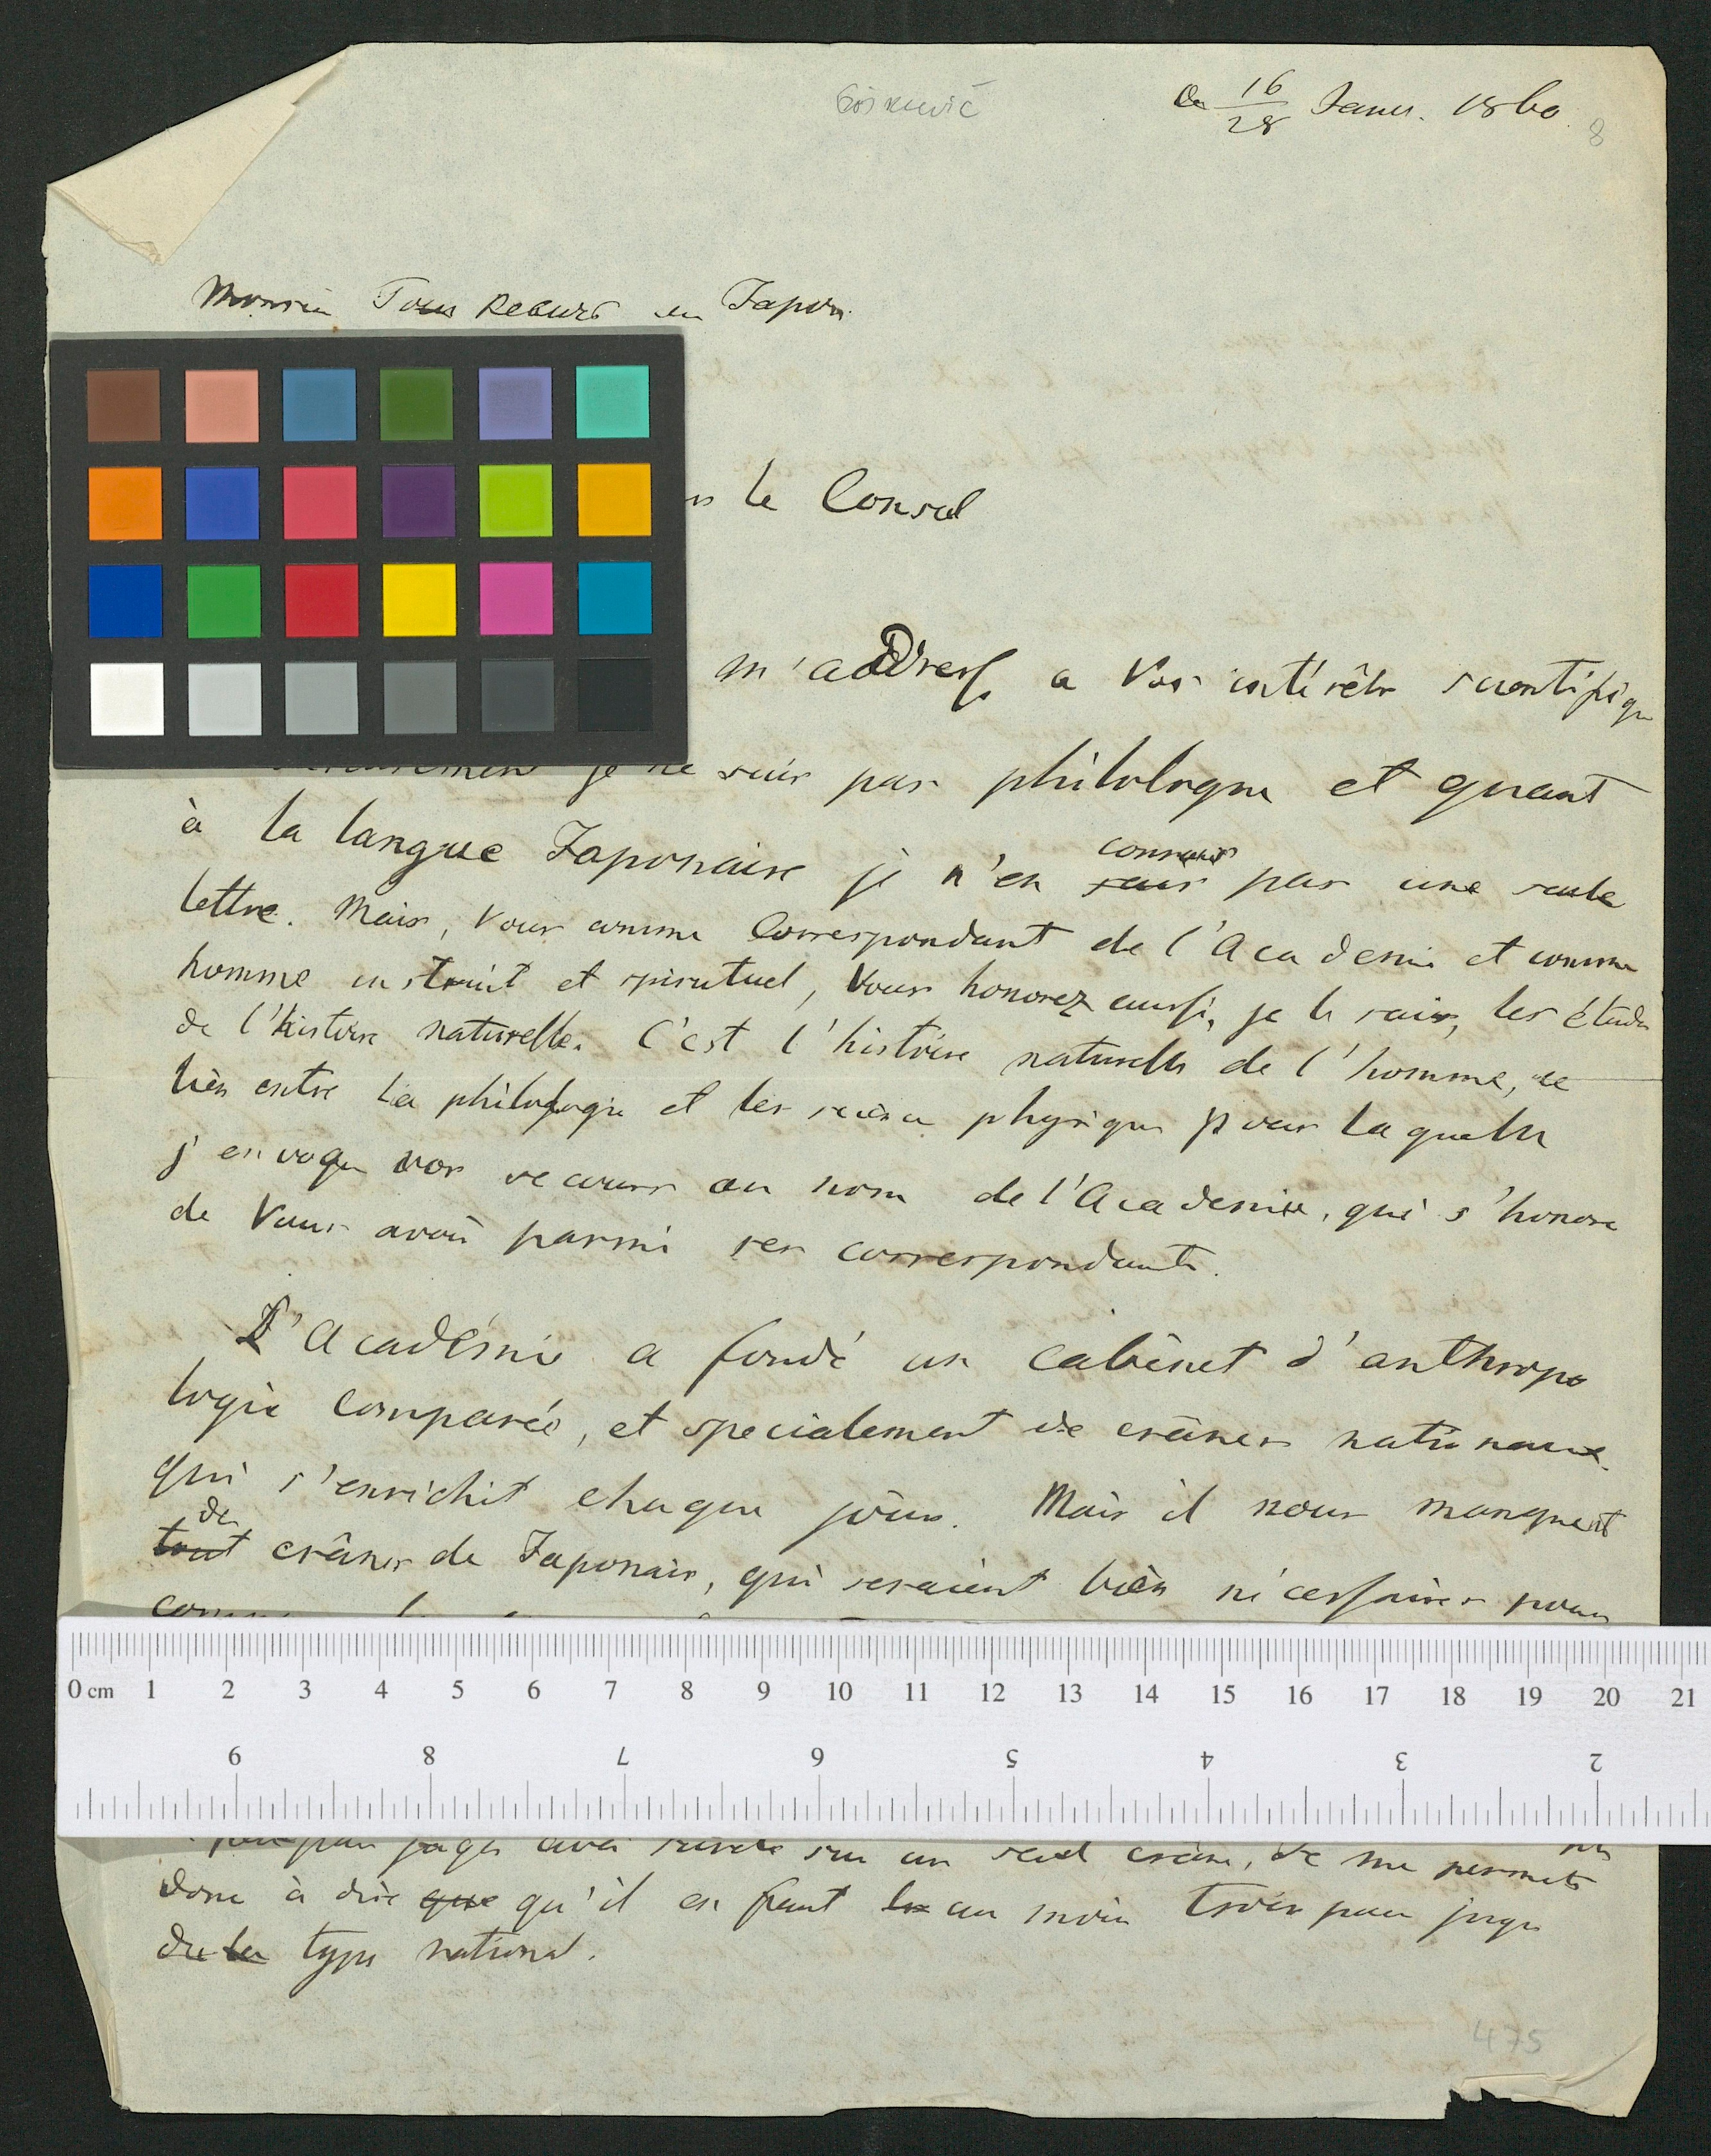 Goškevič
16/28 Janv. 1860.
8
Monsieur en Japon
le Consul
m'addresse a Vos intérêts scientifiqu
je ne suis pas philologue et quant
à la langue Japonaise je n'en connais sais pas une seule
lettre. Mais, Vous comme Correspondant de l'Academie et comme
homme instruit et spirituel, Vous honorez aussi, je le sais, les études
de l'histoire naturelle. C'est l'histoire naturelle de l'homme, ce
lien entre la philologie et les science physique pour laquelle
j'envoque vos recours au nom de l'Academie, qui s'honore
de Vous avoir parmi ses correspondants.
L'Académie a fondé un cabinet d'anthropo
logie comparée, et specialement de crânes nationaux
qui s'enrichit chaque jour. Mais il nous manquent
des tout crânes de Japonais, qui seraient bien nécessaires pour
0 cm 1 2 3 4 5 6 7 8 9 10 11 12 13 14 15 16 17 18 19 20 21
9 8 7 6 5 4 3 2
juger avec sur un seul crâne, Je me permets
donc à dire que qu'il en faut les au moin trois pour juger
du la type national.
475